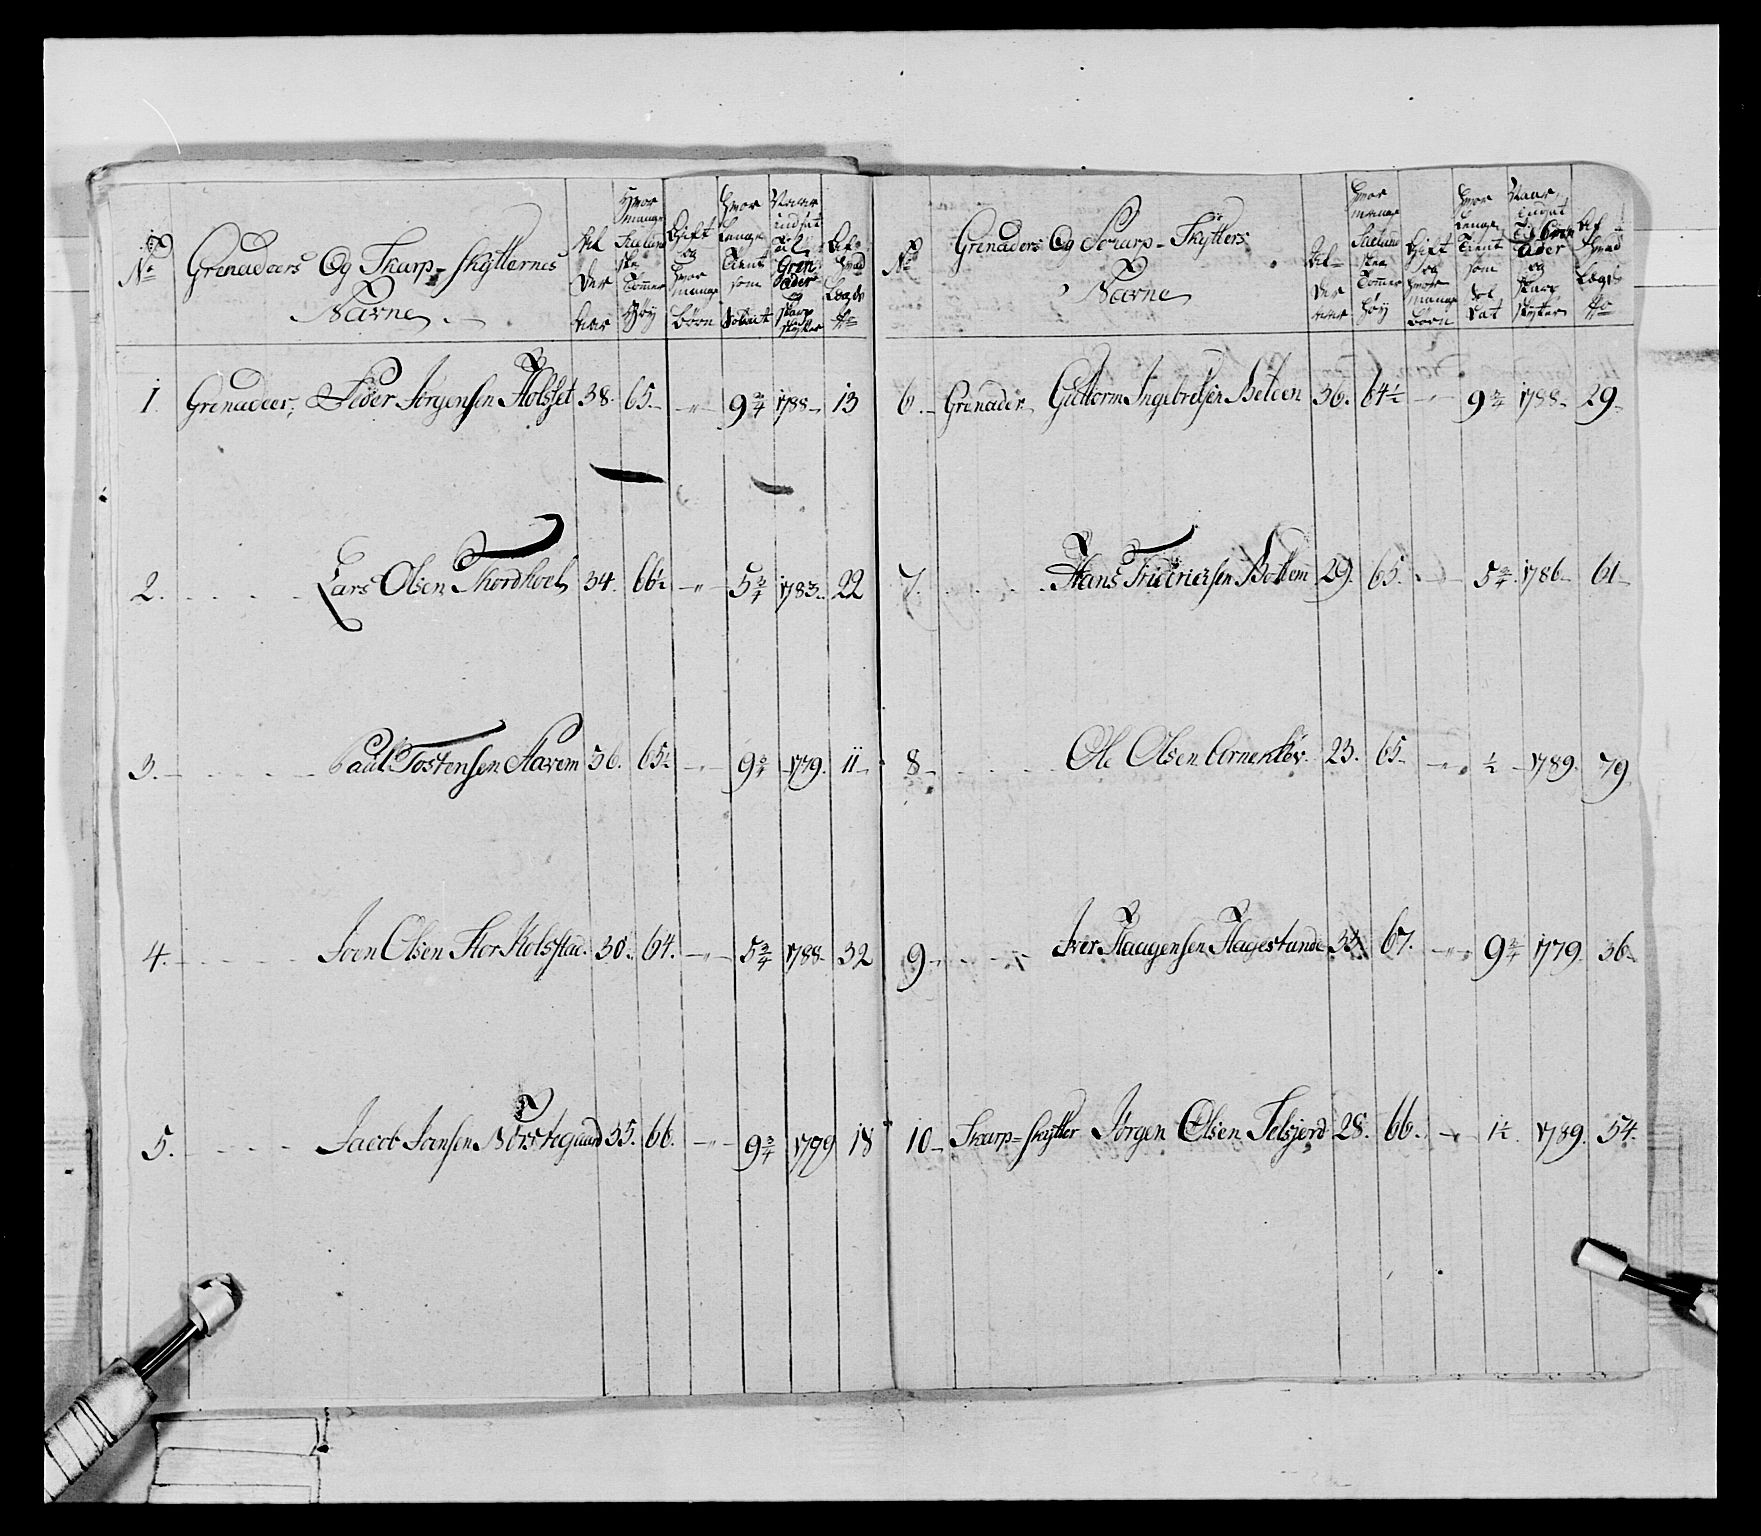 No Grenadeers Og Skarp-skytternes Navne
Al
der
Hvor mange Siælandske Tommer Høy
Gift og Hvor mange børn
Hvor Længe Tient som Soldat
Naar indsat til Grenadeer og Skarpskytter
Af Hvad Lægds No
1. Grenadeer, Peder Jörgensen Holsset 38. 65. - " - 9 3/4 1788. 13
2. Lars Olsen Thordhoel 34. 66 1/2 - " - 5 3/4 1783. 22
3. Paul Tostensen Havem 36. 65 1/2 - " - 9 3/4 1779. 11
4. Joen Olsen Stor Kolsstad. 30. 64. - " - 5 3/4 1788 32
5. Jacob Jonsen Nörstegaard 35. 66. - " - 9 3/4 1779 18
No Grenadeers Og Scarp-Skytters Navne
Al-
der
Hvor mange Siælandske Tommer høy
Gift og Hvor mange Börn
Hvor Længe Tient som Soldat
Naar Indsat og Skarpskytter
Af Hvad Lægds No
6. Grenadeer Guttorm Ingebretsen Beleen 36. 64 1/2 - " - 9 3/4 1788. 29
7. Hans Fridrichsen Bottem 29. 65. - " - 5 3/4 1786 61
8 Ole Olsen Arnenlöv 23. 65 - " - 1/2 1789. 79
9 Iver Haagensen Hagestande 67. - " - 9 3/4 1779 36
10 Skarp=skytter Jörgen Olsen Selsjord 28. 66. - " - 1 1/2 1789. 54.